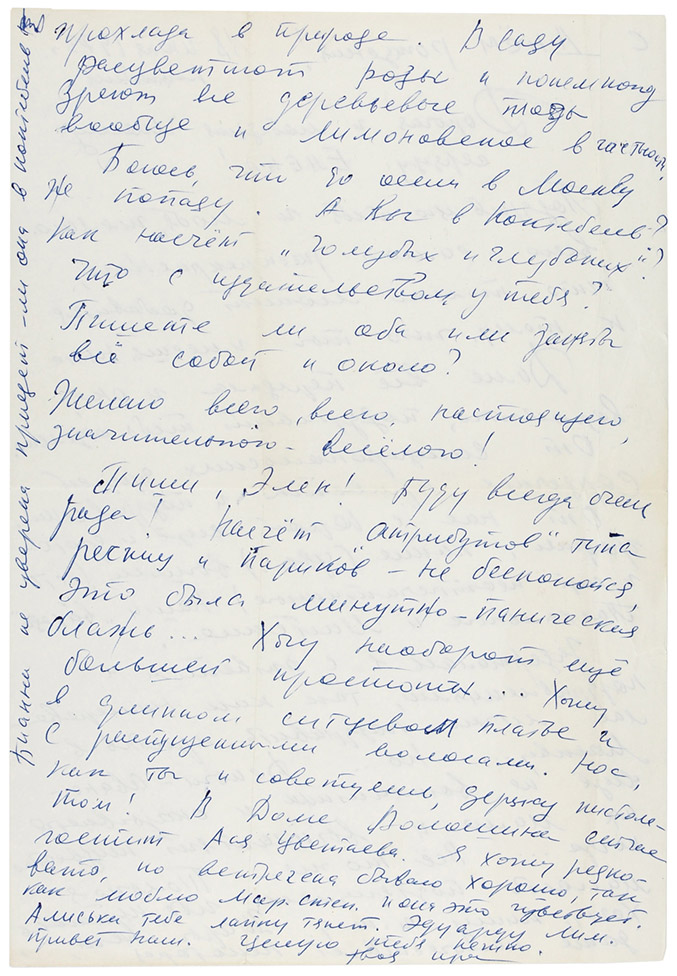 прохлада в природе. В саду
расцветают розы и понемногу
зреют все деревьевые плоды
вообще и лимоновские в частности.
Боюсь, что до осени в Москву
не попаду. А Вы в Коктебель?
Как насчёт "Голубых и глубоких"?
Что с издательством у тебя?
Пишете ли оба или заняты
всё собой и около?
Желаю всего, всего, настоящего,
значительного – весёлого!
Пиши, Элен! Буду всегда очень
рада! Насчёт "атрибутов" типа
ресниц и париков – не беспокойся,
это была минутно-паническая
блажь... Хочу наоборот ещё
большей простоты... Хожу
в длинном ситцевом платье и
с распущенными волосами. Нос,
как ты и советуешь, держу пистоле-
том! В Доме Волошина сейчас
гостит Ася Цветаева. Я хожу редко-
вато, но встречена бываю хорошо, так
как люблю Мар. Степ. и она это чувствует.
Алиська тебе лапку тянет. Эдуарду Лим.
привет наш. Целую тебя нежно.
твоя
Бианки не уверена приедет-ли она в Коктебель